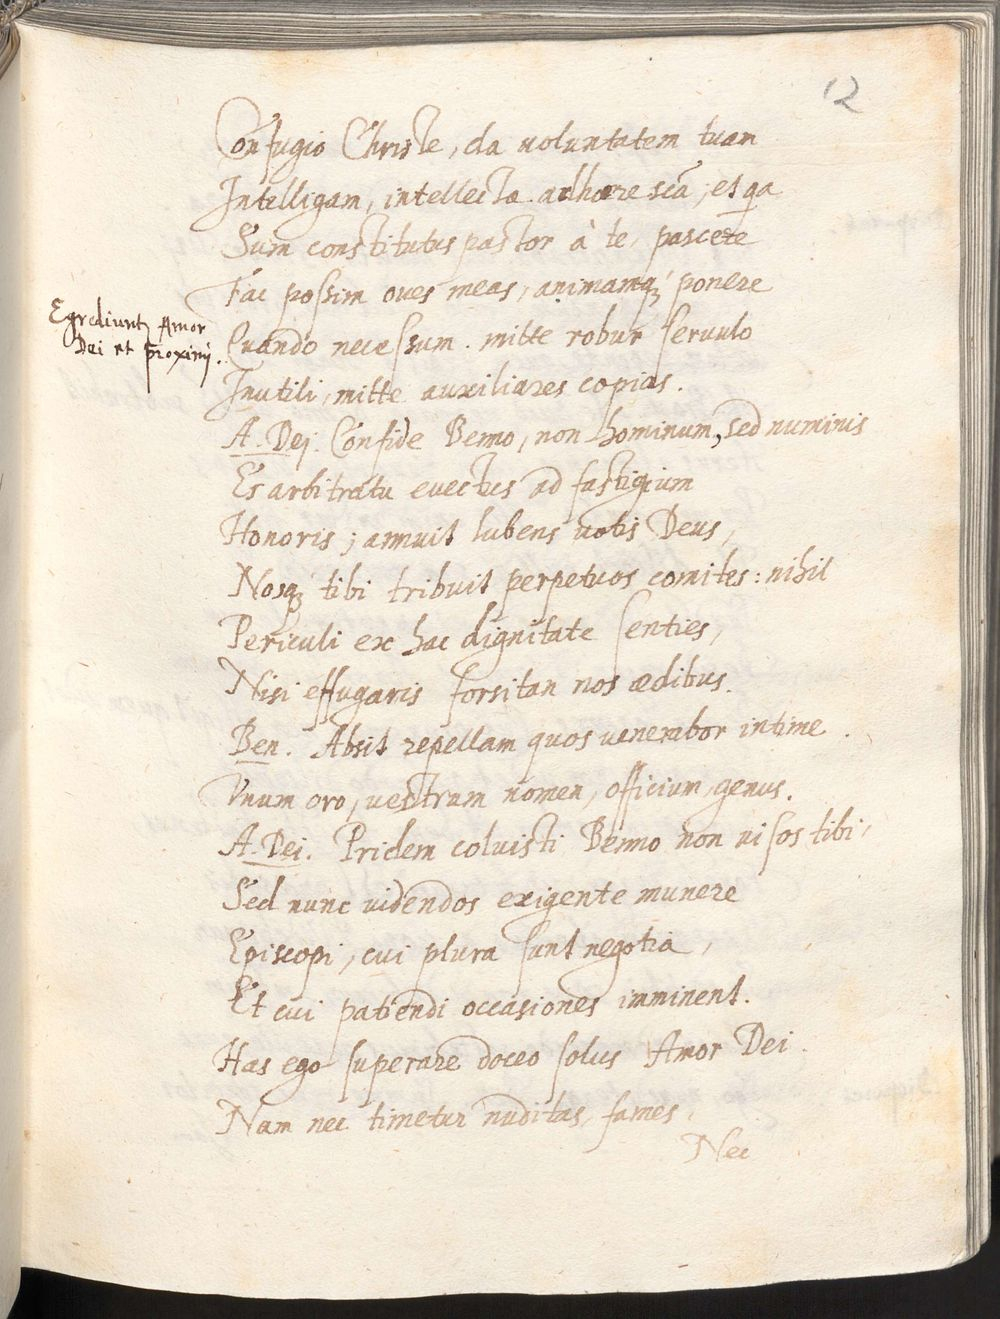 12
Confugio Christe, da voluntatem tuam
Intelligam, intellectæ adhærescã, et qa
Sum constitutus pastor à te, pascere
Fac possim oves meas, animamq́ ponere
Egrediuntʒ Amor
Dei et Proximi.
Quando necessum. mitte robur servulo
Inutili, mitte auxiliares copias.
A. Dei. Confide Benno, non hominum, sed numinis
Es arbitratu evectus ad fastigium
Honoris; annuit lubens votis Deus,
Nosq́ tibi tribuit perpetuos comites: nihil
Periculi ex hac dignitate senties,
Nisi effugaris forsitan nos ædibus.
Ben. Absit repellam quos venerabor intime.
Vnum oro, vestrum nomen, officium, genus.
A. Dei. Pridem coluisti Benno non visos tibi,
Sed nunc videndos exigente munere
Episcopi, cui plura sunt negotia,
Et cui patiendi occasiones imminent.
Has ego superare doceo solus Amor Dei.
Nam nec timetur nuditas, fames,
Nec